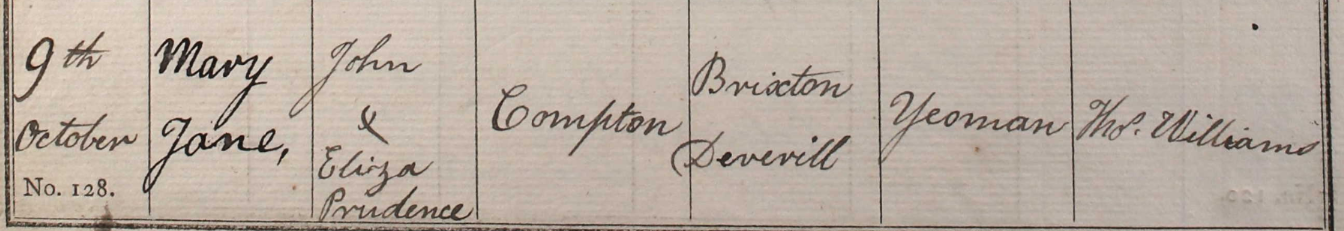 9th
October
No. 128.
Mary
Jane,
John
&
Eliza
Prudence
Compton
Brixton
Deverill
Yeoman
Thos. Williams